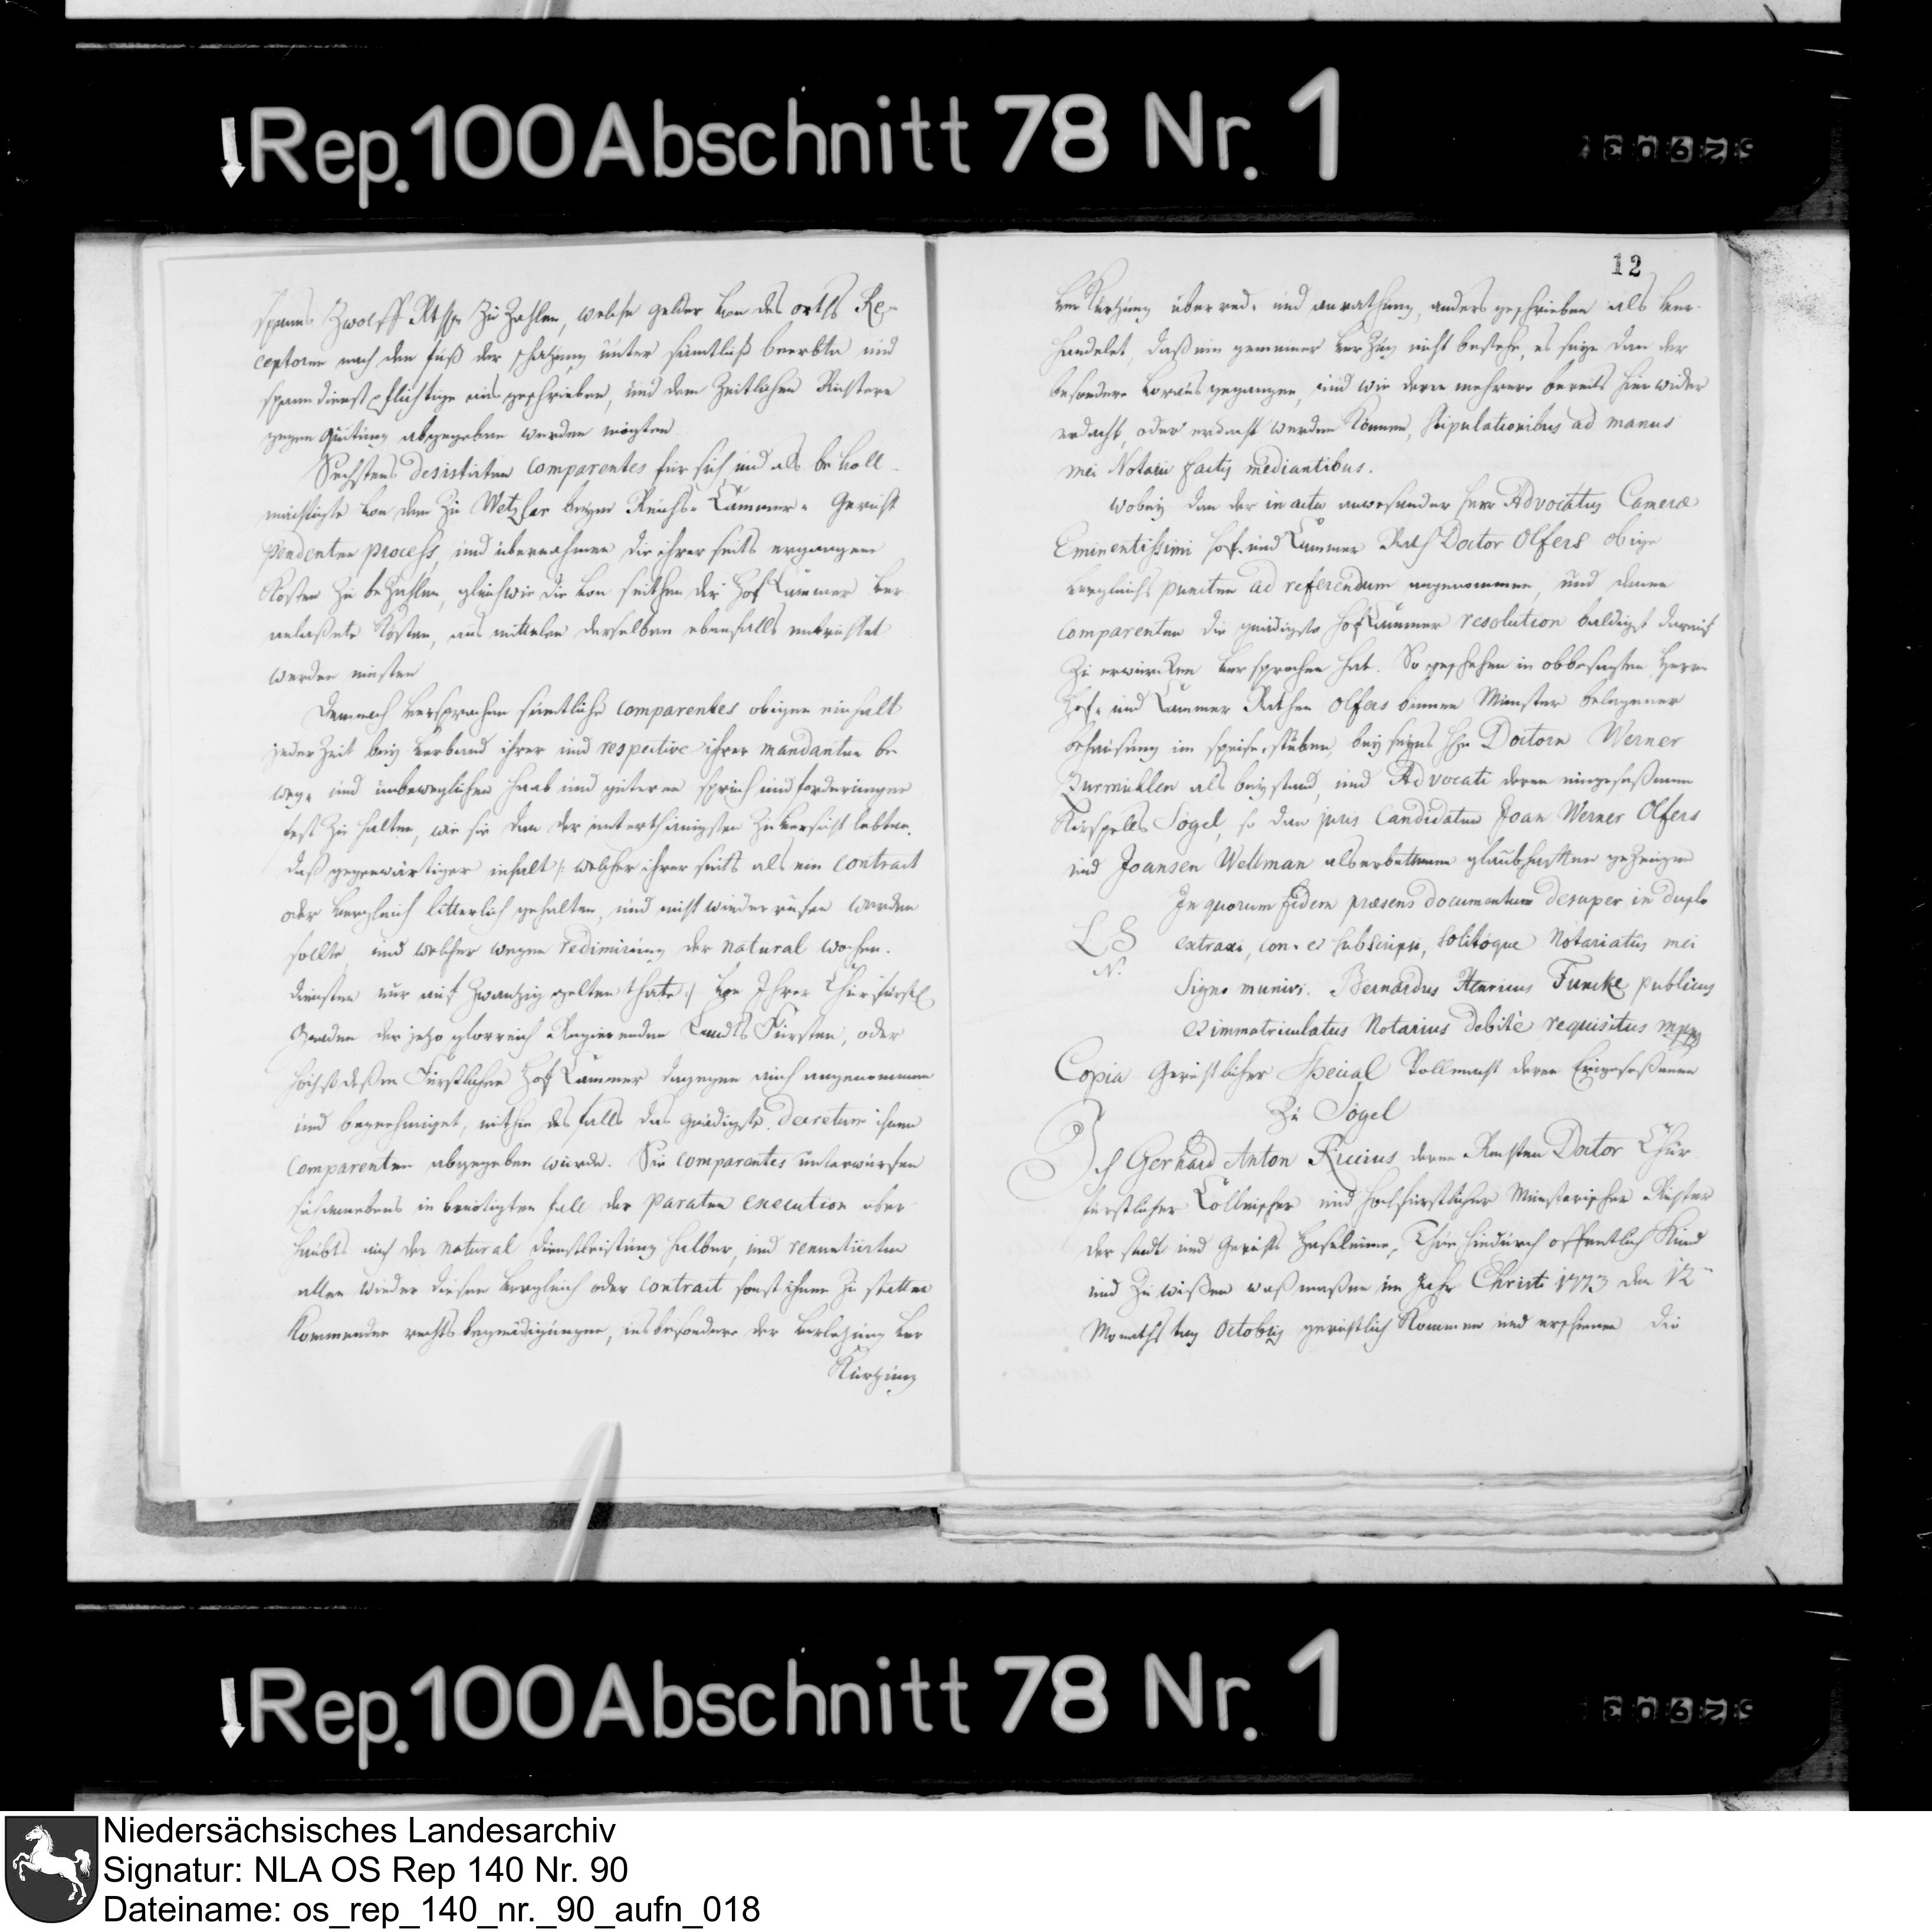 Rep.100 Abschnitt 78 Nr. 1
spann Zwolff Rthlr Zu Zahlen, welche gelder von des orths Re-
ceptoren nach dem fuß der schatzung unter sämtliche beerbte und
spanndienstpflichtige ausgeschrieben, und dem Zeitlichen Rentmeistere
gegen quitung abgegeben werden mögten
Sechstens desistirten Comparentes für sich und als bevoll-
mächtigte von dem Zu Wetzlar beym Reichs-Cammer-Gericht
pendenten process, und übernahmen die ihrer seits ergangene
Kosten Zu beZahlen, gleichwie die von seithen der HofCammer ver-
anlaßete Kösten, aus mittelen derselben ebenfalls entrichtet
werden müsten
Demnach versprachen sämtliche Comparentes obigen einhalt
jederZeit bey verband ihrer und respective ihrer mandanten be-
weg- und unbeweglichen haab und güteren spruch und forderungen
fest Zu halten, wie sie dan der unterthänigsten Zuversicht lebten,
daß gegenwärtiger inhalt /: welcher ihrer seits als ein Contract
oder vergleich litterlich gehalten, und nicht wiederrufen werden
sollte, und welcher wegen redimirung der natural wochen-
diensten nur auf Zwantzig gelten thäte :/ von Ihrer Churfürstl
Gnaden der jetzo glorreich Regierenden Landts Fürsten, oder
höchst deßen Fürstlichen HofCammer dagegen auch angenommen
und begnehmiget, mithin desfalls das gnädigste Decretum ihnen
Comparenten abgegeben würde. Sie Comparentes unterwürfen
sich annebens in benötigten fall der paraten execution über-
haubt auch der natural dienstleistung halber, und renuntiirten
allen wieder diesen vergleich oder Contract sonst ihnen Zu statten
Kommenden rechts begnädigungen, insbesondere der verletzung ver-
Kürtzung
12
ver Kürtzung überred- und anrathung, anders geschrieben als ver-
handelet, daß ein gemeiner verZug nicht bestehe, es seye dan der
besondere voraus gegangen, und wie deren mehrere bereits hierwider
erdacht, oder erdacht werden Können, stipulationibus ad manus
mei Notarii factis mediantibus.
wobey dan der in actu anwesender Herr Advocatus Cameræ
Eminentissimi Hof- und Cammer Rath Doctor Olfers obige
vergleichs puncten ad referendum angenommen, und denen
Comparenten die gnädigste HofCammer resolution baldigst darauf
Zu erwürcken versprochen hat. So geschehen in obbesagten Herrn
Hof- und Cammer Rathen Olfers binnen Münster belegener
behausung im speise-stuben, bey seyns Hrn Doctorn Werner
Zurmühlen als beystand, und Advocati deren eingeseßenen
Kirspels Sögel, so dan juris Candidaten Joan Werner Olfers
und Joansen Weltman als erbettenen glaubhafften geZeugen
In quorum fidem præsens documentum desuper in duplo
LS extraxi, con- et subscripsi, solitoque Notariatus mei
N.
Signo munivi. Bernardus Henricus Funcke publicus
et immatriculatus Notarius debitè requisitus mppp
Copia Gerichtlicher Special Vollmacht deren Eingeseßenen
Zu Sögel
Ich Gerhard Anton Riccius deren Rechten Doctor Chur-
fürstlicher Cöllnischer und hochfürstlicher Münsterischer Richter
der stadt und Gerichts Haselünne, Thue hiedurch offentlich Kund
und Zu wißen was maßen im Jahr Christi 1773 den 12ten
Monaths tag Octobris gerichtlich Kommen und erschienen die
Rep.100 Abschnitt 78 Nr. 1
Niedersächsisches Landesarchiv
Signatur: NLA OS Rep 140 Nr. 90
Dateiname: os_rep_140_nr._90_aufn_018